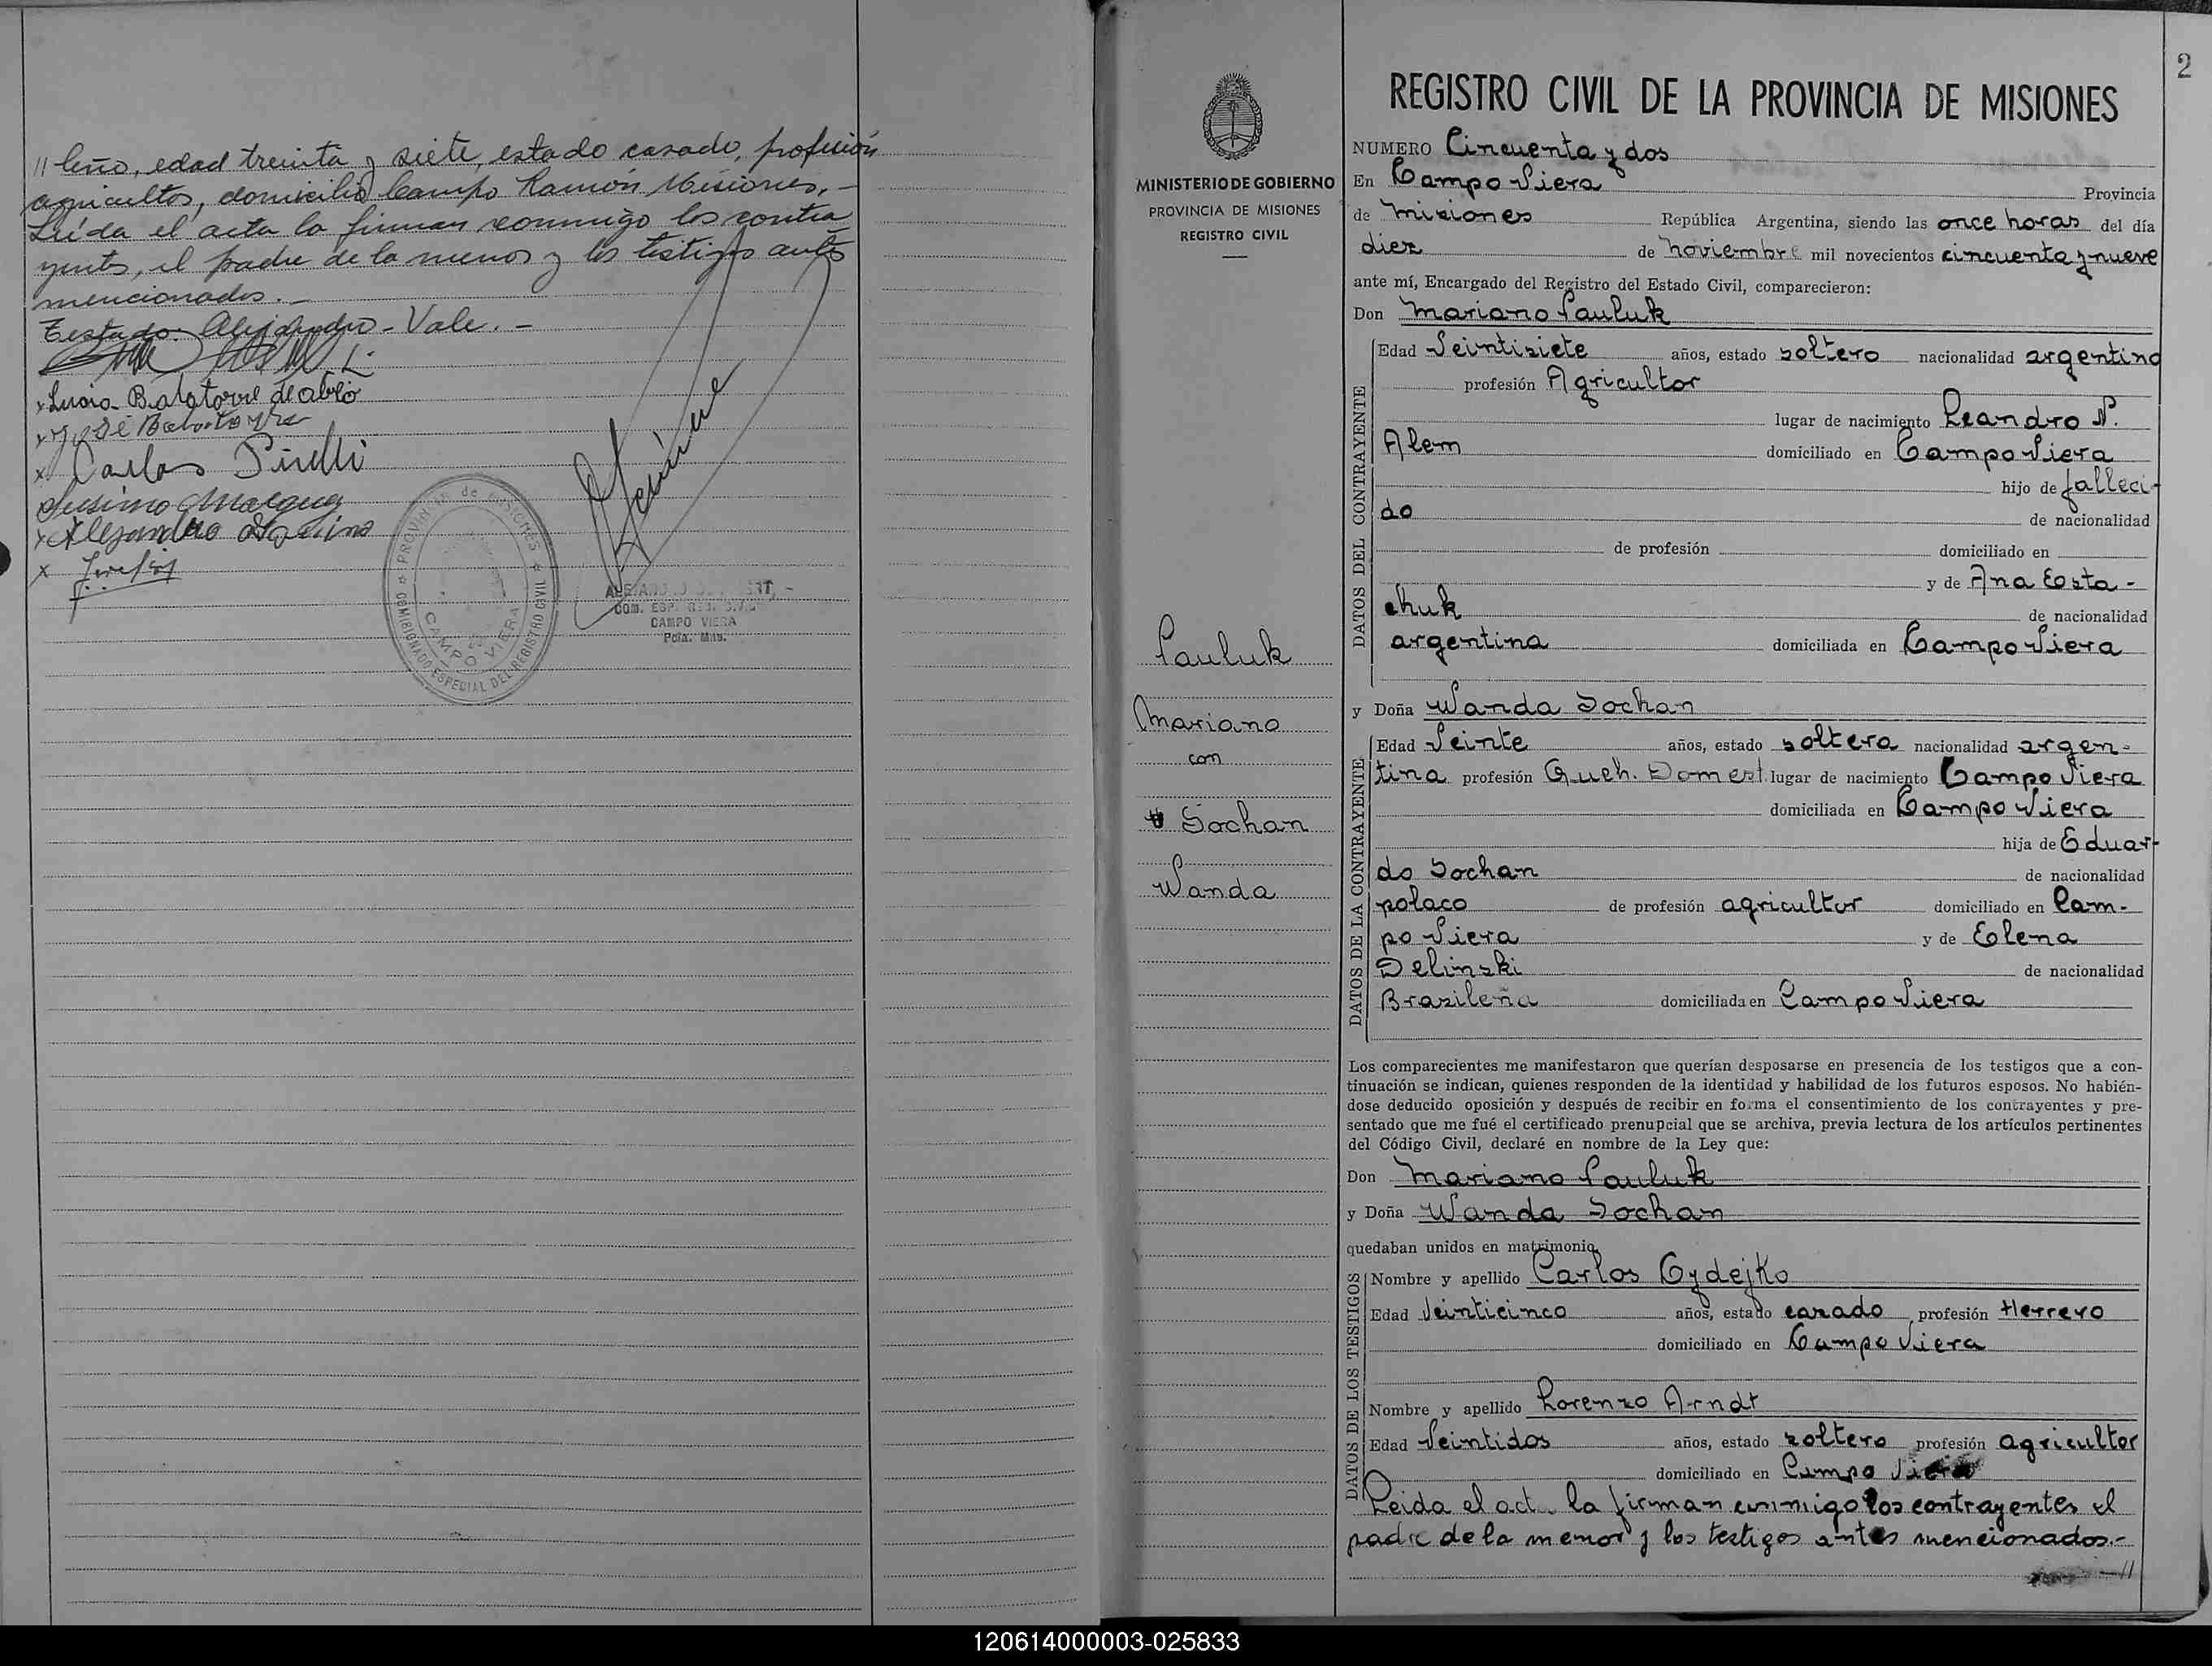 // leño, edad treinta y siete, estado casado, profesión
agricultor, domicilio Campo Ramón Misiones. -
Leída el acta la firman conmigo los contra
yentes, el padre de la menor y los testigos antes
mencionados. -
Testado: Alejandro - Vale. -
x Carlos Pirelli
x Alejandro
PROVINCIA de MISIONES
COMISIONADO ESPECIAL DEL REGISTRO CIVIL
CAMPO VIERA
COM. ESP. REG. CIVIL
CAMPO VIERA
Pcia. Mnes.
2
MINISTERIO DE GOBIERNO
PROVINCIA DE MISIONES
REGISTRO CIVIL
Pauluk
Mariano
con
Sochan
Wanda
REGISTRO CIVIL DE LA PROVINCIA DE MISIONES
NUMERO Cincuenta y dos
En Campo Viera Provincia
de Misiones República Argentina, siendo las once horas del día
diez de noviembre mil novecientos cincuenta y nueve
ante mí, Encargado del Registro del Estado Civil, comparecieron:
Don Mariano Pauluk
DATOS DEL CONTRAYENTE
Edad Veintisiete años, estado soltero nacionalidad argentino
profesión Agricultor
lugar de nacimiento Leandro N.
Alem domiciliado en Campo Viera
hijo de falleci-
do de nacionalidad
de profesión domiciliado en
y de Ana Esta-
chuk de nacionalidad
argentina domiciliada en Campo Viera
y Doña Wanda Sochan
DATOS DE LA CONTRAYENTE
Edad Veinte años, estado soltera nacionalidad argen-
tina profesión Queh. Domest. lugar de nacimiento Campo Viera
domiciliada en Campo Viera
hija de Eduar-
do Sochan de nacionalidad
polaco de profesión agricultor domiciliado en Cam-
po Viera y de Elena
Delinski de nacionalidad
Brasileña domiciliada en Campo Viera
Los comparecientes me manifestaron que querían desposarse en presencia de los testigos que a con-
tinuación se indican, quienes responden de la identidad y habilidad de los futuros esposos. No habién-
dose deducido oposición y después de recibir en forma el consentimiento de los contrayentes y pre-
sentado que me fué el certificado prenupcial que se archiva, previa lectura de los artículos pertinentes
del Código Civil, declaré en nombre de la Ley que:
Don Mariano Pauluk
y Doña Wanda Sochan
quedaban unidos en matrimonio.
DATOS DE LOS TESTIGOS
Nombre y apellido Carlos Cydejko
Edad Veinticinco años, estado casado profesión Herrero
domiciliado en Campo Viera
Nombre y apellido Lorenzo Arndt
Edad Veintidos años, estado soltero profesión agricultor
domiciliado en Campo Viera
Leida el acta la firman conmigo los contrayentes el
padre de la menor y los testigos antes mencionados.-
//
120614000003-025833